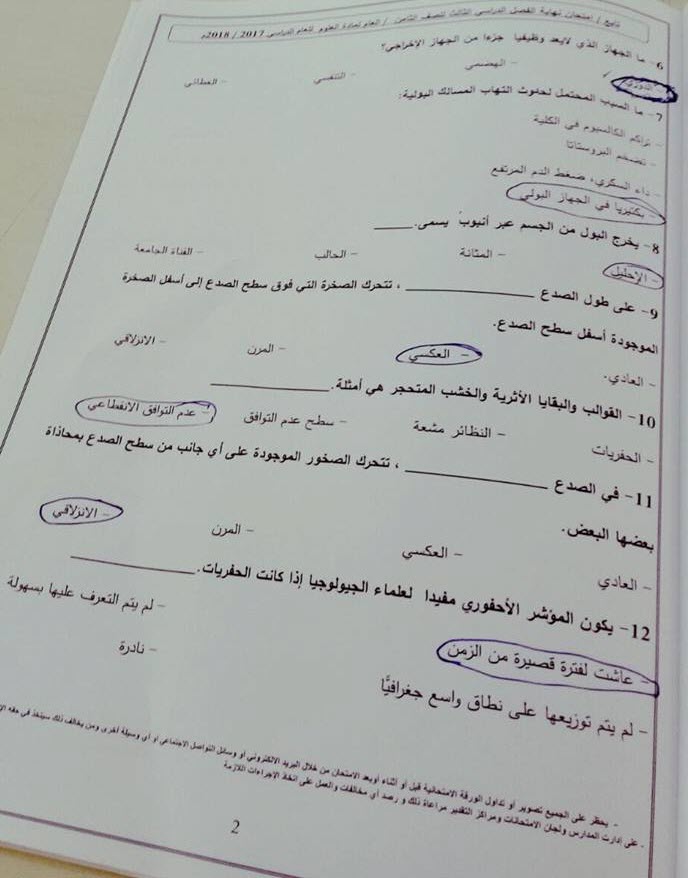 تابع / امتحان نهاية الفصل الدراسي الثالث للصف الثامن / العام لمادة العلوم للعام الدراسي 2017 / 2018م
6- ما الجهاز الذي لايعد وظيفيا جزءا من الجهاز الإخراجي؟
الدوري - الهضمي - التنفسي - الغطائي
7- ما السبب المحتمل لحدوث التهاب المسالك البولية:
- تراكم الكالسيوم في الكلية
- تضخم البروستاتا
- داء السكري، ضغط الدم المرتفع
- بكتيريا في الجهاز البولي
8- يخرج البول من الجسم عبر أنبوب يسمى.____
- الإحليل - المثانة - الحالب - القناة الجامعة
9- على طول الصدع ____________ ، تتحرك الصخرة التي فوق سطح الصدع إلى أسفل الصخرة
الموجودة أسفل سطح الصدع.
- العادي. - العكسي - المرن - الانزلاقي
10- القوالب والبقايا الأثرية والخشب المتحجر هي أمثلة.____________
- الحفريات - النظائر مشعة - سطح عدم التوافق - عدم التوافق الانقطاعي
11- في الصدع ____________ ، تتحرك الصخور الموجودة على أي جانب من سطح الصدع بمحاذاة
بعضها البعض.
- العادي - العكسي - المرن - الانزلاقي
12- يكون المؤشر الأحفوري مفيدا لعلماء الجيولوجيا إذا كانت الحفريات.____________
- عاشت لفترة قصيرة من الزمن - لم يتم التعرف عليها بسهولة
- لم يتم توزيعها على نطاق واسع جغرافيًا - نادرة
- يحظر على الجميع تصوير أو تداول الورقة الامتحانية قبل أو أثناء أوبعد الامتحان من خلال البريد الالكتروني أو وسائل التواصل الاجتماعي أو أي وسيلة أخرى ومن يخالف ذلك سيتخذ في حقه
- على إدارت المدارس ولجان الامتحانات ومراكز التقدير مراعاة ذلك و رصد أي مخالفات والعمل على اتخاذ الإجراءات اللازمة
2